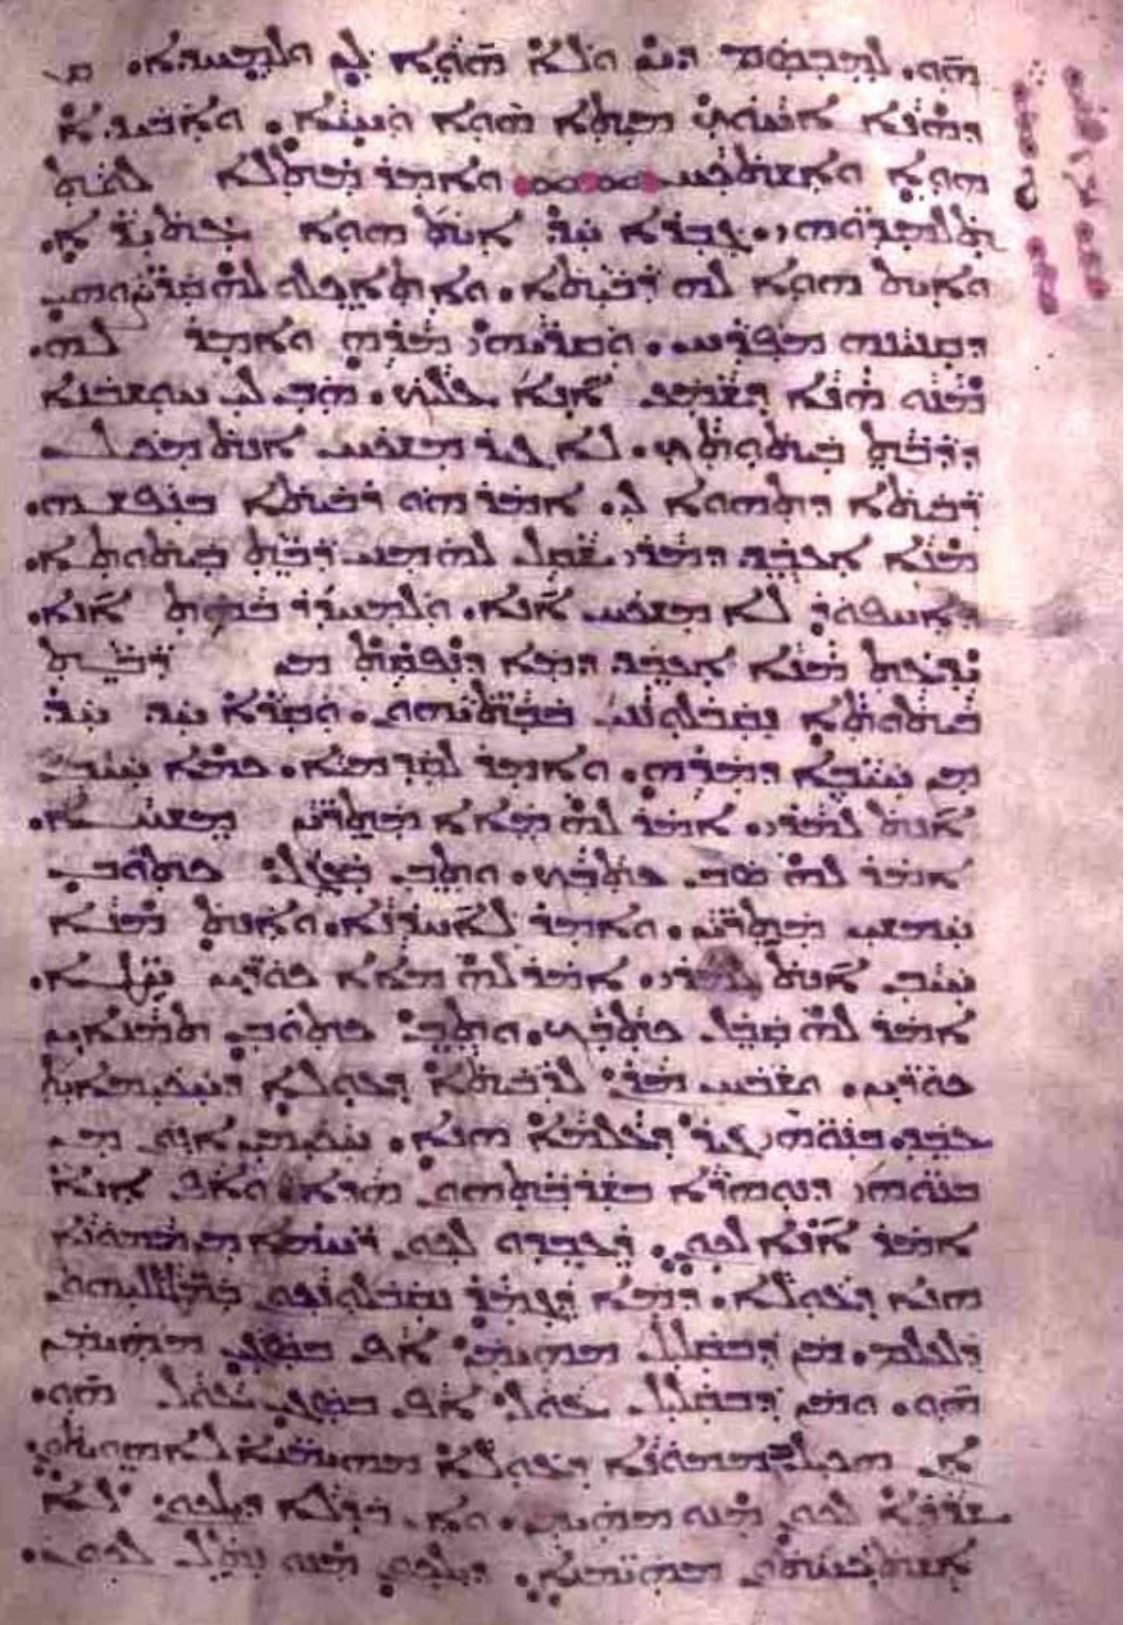 ܗܘܐ. ܠܡܒܣܡ ܕܝܢ ܘܠܐ ܗܘܐ ܠܢ ܘܠܡܚܕܐ.
ܕܗܢܐ ܐܚܘܟ ܡܝܬܐ ܗܘܐ ܘܚܝܐ. ܘܐܒܝܕܐ
ܗܘܐ ܘܐܫܬܟܚ ܘܐܡܪ ܡܬܠܐ ܠܘܬ
ܬܠܡܝܕܘܗܝ. ܓܒܪܐ ܚܕ ܐܝܬ ܗܘܐ ܥܬܝܪܐ.
ܘܐܝܬ ܗܘܐ ܠܗ ܪܒܝܬܐ. ܘܐܬܐܟܠܘ ܠܗ ܩܪܨܘܗܝ
ܕܩܢܝܢܗ ܡܦܪܚ. ܘܩܪܝܗܝ ܡܪܗ ܘܐܡܪ ܠܗ.
ܡܢܘ ܗܢܐ ܕܫܡܥ ܐܢܐ ܥܠܝܟ. ܗܒ ܠܝ ܚܘܫܒܢܐ
ܕܪܒܬ ܒܝܬܘܬܟ. ܠܐ ܓܝܪ ܡܫܟܚ ܐܢܬ ܡܟܝܠ
ܪܒܝܬܐ ܕܬܗܘܐ ܠܝ. ܐܡܪ ܗܘ ܪܒܝܬܐ ܒܢܦܫܗ.
ܡܢܐ ܐܥܒܕ ܕܡܪܝ ܫܩܠ ܠܗ ܡܢܝ ܪܒܬ ܒܝܬܘܬܐ.
ܕܐܚܦܘܪ ܠܐ ܡܫܟܚ ܐܢܐ. ܘܠܡܚܕܪ ܒܗܬ ܐܢܐ.
ܝܕܥܬ ܡܢܐ ܐܥܒܕ ܕܡܐ ܕܢܦܩܬ ܡܢ ܪܒܬ
ܒܝܬܘܬܐ ܢܩܒܠܘܢܢܝ ܒܒܬܝܗܘܢ. ܘܩܪܐ ܚܕ ܚܕ
ܡܢ ܚܝܒܐ ܕܡܪܗ. ܘܐܡܪ ܠܩܕܡܝܐ. ܟܡܐ ܚܝܒ
ܐܢܬ ܠܡܪܝ. ܐܡܪ ܠܗ ܡܐܐ ܡܬܪܝܢ ܡܫܚܐ.
ܐܡܪ ܠܗ ܣܒ ܟܬܒܟ. ܘܬܒ ܒܥܓܠ ܟܬܘܒ
ܚܡܫܝܢ ܡܬܪܝܢ. ܘܐܡܪ ܠܐܚܪܢܐ. ܘܐܢܬ ܡܢܐ
ܚܝܒ ܐܢܬ ܠܡܪܝ. ܐܡܪ ܠܗ ܡܐܐ ܟܘܪܝܢ ܚܛܐ.
ܐܡܪ ܠܗ ܩܒܠ ܟܬܒܟ. ܘܬܒ ܟܬܘܒ ܬܡܢܐܝܢ
ܟܘܪܝܢ. ܘܫܒܚ ܡܪܢ ܠܪܒܝܬܐ ܕܥܘܠܐ ܕܚܟܝܡܐܝܬ
ܥܒܕ. ܒܢܝܗ ܓܝܪ ܕܥܠܡܐ ܗܢܐ. ܚܟܝܡܝܢ ܐܢܘܢ ܡܢ
ܒܢܝܗ ܕܢܘܗܪܐ ܒܫܪܒܬܗܘܢ ܗܕܐ. ܘܐܦ ܐܢܐ
ܐܡܪ ܐܢܐ ܠܟܘܢ. ܕܥܒܕܘ ܠܟܘܢ ܪܚܡܐ ܡܢ ܡܡܘܢܐ
ܗܢܐ ܕܥܘܠܐ. ܕܡܐ ܕܓܡܪ ܢܩܒܠܘܢܟܘܢ ܒܡܛܠܠܝܗܘܢ
ܕܠܥܠܡ. ܡܢ ܕܒܩܠܝܠ ܡܗܝܡܢ ܐܦ ܒܣܓܝ ܡܗܝܡܢ
ܗܘ. ܘܡܢ ܕܒܩܠܝܠ ܥܘܠ ܐܦ ܒܣܓܝ ܥܘܠ ܗܘ.
ܐܢ ܗܟܝܠ ܒܡܡܘܢܐ ܕܥܘܠܐ ܡܗܝܡܢܐ ܠܐ ܗܘܝܬܘܢ.
ܫܪܪܐ ܠܟܘܢ ܡܢܘ ܡܗܝܡܢ. ܘܐܢ ܒܕܠܐ ܕܝܠܟܘܢ ܠܐ
ܐܫܬܟܚܬܘܢ ܡܗܝܡܢܐ. ܕܝܠܟܘܢ ܡܢܘ ܢܬܠ ܠܟܘܢ.